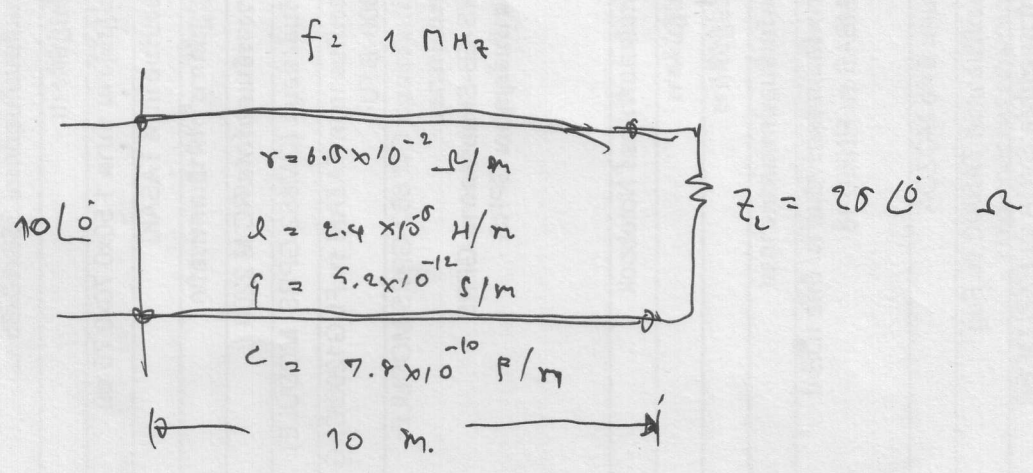 f = 1 MHz
r = 6.5 × 10⁻² Ω/m
10 ∠0° l = 2.4 × 10⁻⁵ H/m Z_L = 25 ∠0° Ω
g = 5.2 × 10⁻¹² S/m
c = 7.8 × 10⁻¹⁰ F/m
10 m.